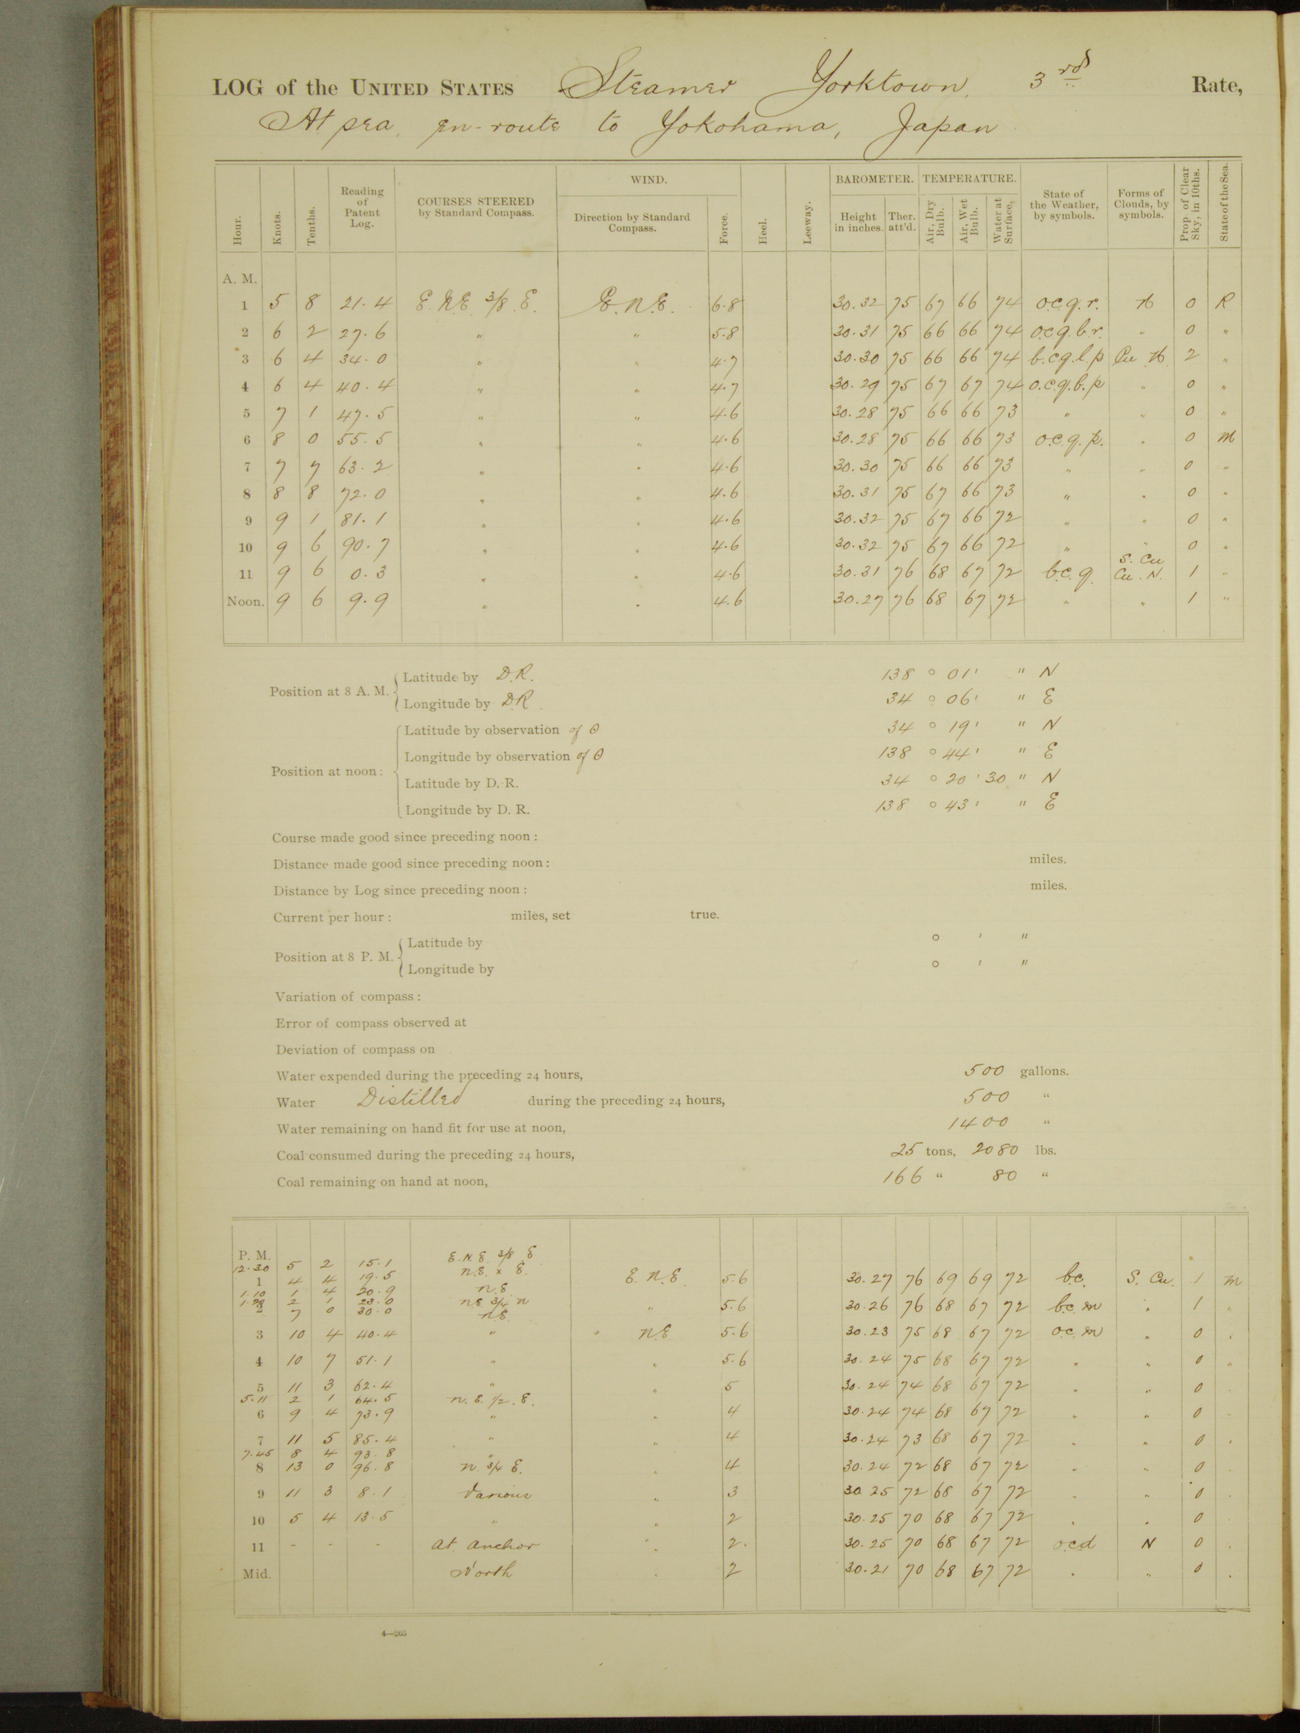 LOG of the UNITED STATES Steamer Yorktown, 3rd Rate,
At sea, en-route to Yokohama, Japan
Hour. Knots. Tenths. Reading of Patent Log. COURSES STEERED by Standard Compass. WIND. Direction by Standard Compass. Force. Heel. Leeway. BAROMETER. Height in inches. Ther. att'd. TEMPERATURE. Air, Dry Bulb. Air, Wet Bulb. Water at Surface. State of the Weather, by symbols. Forms of Clouds, by symbols. Prop. of Clear Sky, in 10ths. State of the Sea.
A. M.
1 5 8 21.4 E.N.E. 3/8 E. E.N.E. 6.8 30.32 75 67 66 74 o.c.q.r. N 0 R
2 6 2 27.6 " " 5.8 30.31 75 66 66 74 o.c.q.l.r. " 0 "
3 6 4 34.0 " " 4.7 30.30 75 66 66 74 b.c.q.l.p Cu N 2 "
4 6 4 40.4 " " 4.7 30.29 75 67 67 74 o.c.q.l.p " 0 "
5 7 1 47.5 " " 4.6 30.28 75 66 66 73 " " 0 "
6 8 0 55.5 " " 4.6 30.28 75 66 66 73 o.c.q.p. " 0 M
7 7 7 63.2 " " 4.6 30.30 75 66 66 73 " " 0 "
8 8 8 72.0 " " 4.6 30.31 75 67 66 73 " " 0 "
9 9 1 81.1 " " 4.6 30.32 75 67 66 72 " " 0 "
10 9 6 90.7 " " 4.6 30.32 75 67 66 72 " " 0 "
11 9 6 0.3 " " 4.6 30.31 76 68 67 72 b.c.q. S. Cu Cu. N. 1 "
Noon. 9 6 9.9 " " 4.6 30.27 76 68 67 72 " " 1 "
Position at 8 A. M. Latitude by D.R. 138 ° 01 ' " N
Longitude by DR 34 ° 06 ' " E
Position at noon: Latitude by observation of ⊙ 34 ° 19 ' " N
Longitude by observation of ⊙ 138 ° 44 ' " E
Latitude by D. R. 34 ° 20 ' 30 " N
Longitude by D. R. 138 ° 43 ' " E
Course made good since preceding noon:
Distance made good since preceding noon: miles.
Distance by Log since preceding noon: miles.
Current per hour: miles, set true.
Position at 8 P. M. Latitude by ° ' "
Longitude by ° ' "
Variation of compass:
Error of compass observed at
Deviation of compass on
Water expended during the preceding 24 hours, 500 gallons.
Water Distilled during the preceding 24 hours, 500 "
Water remaining on hand fit for use at noon, 1400 "
Coal consumed during the preceding 24 hours, 25 tons, 2080 lbs.
Coal remaining on hand at noon, 166 " 80 "
P. M.
12.30 5 2 15.1 E.N.E 3/8 E
1 4 4 19.5 N.E. x E. E.N.E. 5.6 30.27 76 69 69 72 b.c. S. Cu. 1 M
1.10 1 4 20.9 N.E.
2 1 23.0 NE 3/4 N
2 7 0 30.0 NE " 5.6 30.26 76 68 67 72 b.c.m " 1 "
3 10 4 40.4 " NE 5.6 30.23 75 68 67 72 o.c.m " 0 "
4 10 7 51.1 " " 5.6 30.24 75 68 67 72 " " 0 "
5 11 3 62.4 " " 5 30.24 74 68 67 72 " " 0
5.11 2 1 64.5 N.E. 1/2 E.
6 9 4 73.9 " " 4 30.24 74 68 67 72 " " 0
7 11 5 85.4 " " 4 30.24 73 68 67 72 " " 0 "
7.45 8 4 93.8 "
8 13 0 96.8 N. 3/4 E. " 4 30.24 72 68 67 72 " " 0 "
9 11 3 8.1 Various " 3 30.25 72 68 67 72 " " 0 "
10 5 4 13.5 " " 2 30.25 70 68 67 72 " " 0 "
11 - - - At Anchor " 2. 30.25 70 68 67 72 o.c.d N 0 "
Mid. North " 2 30.21 70 68 67 72 " " 0 "
4—265